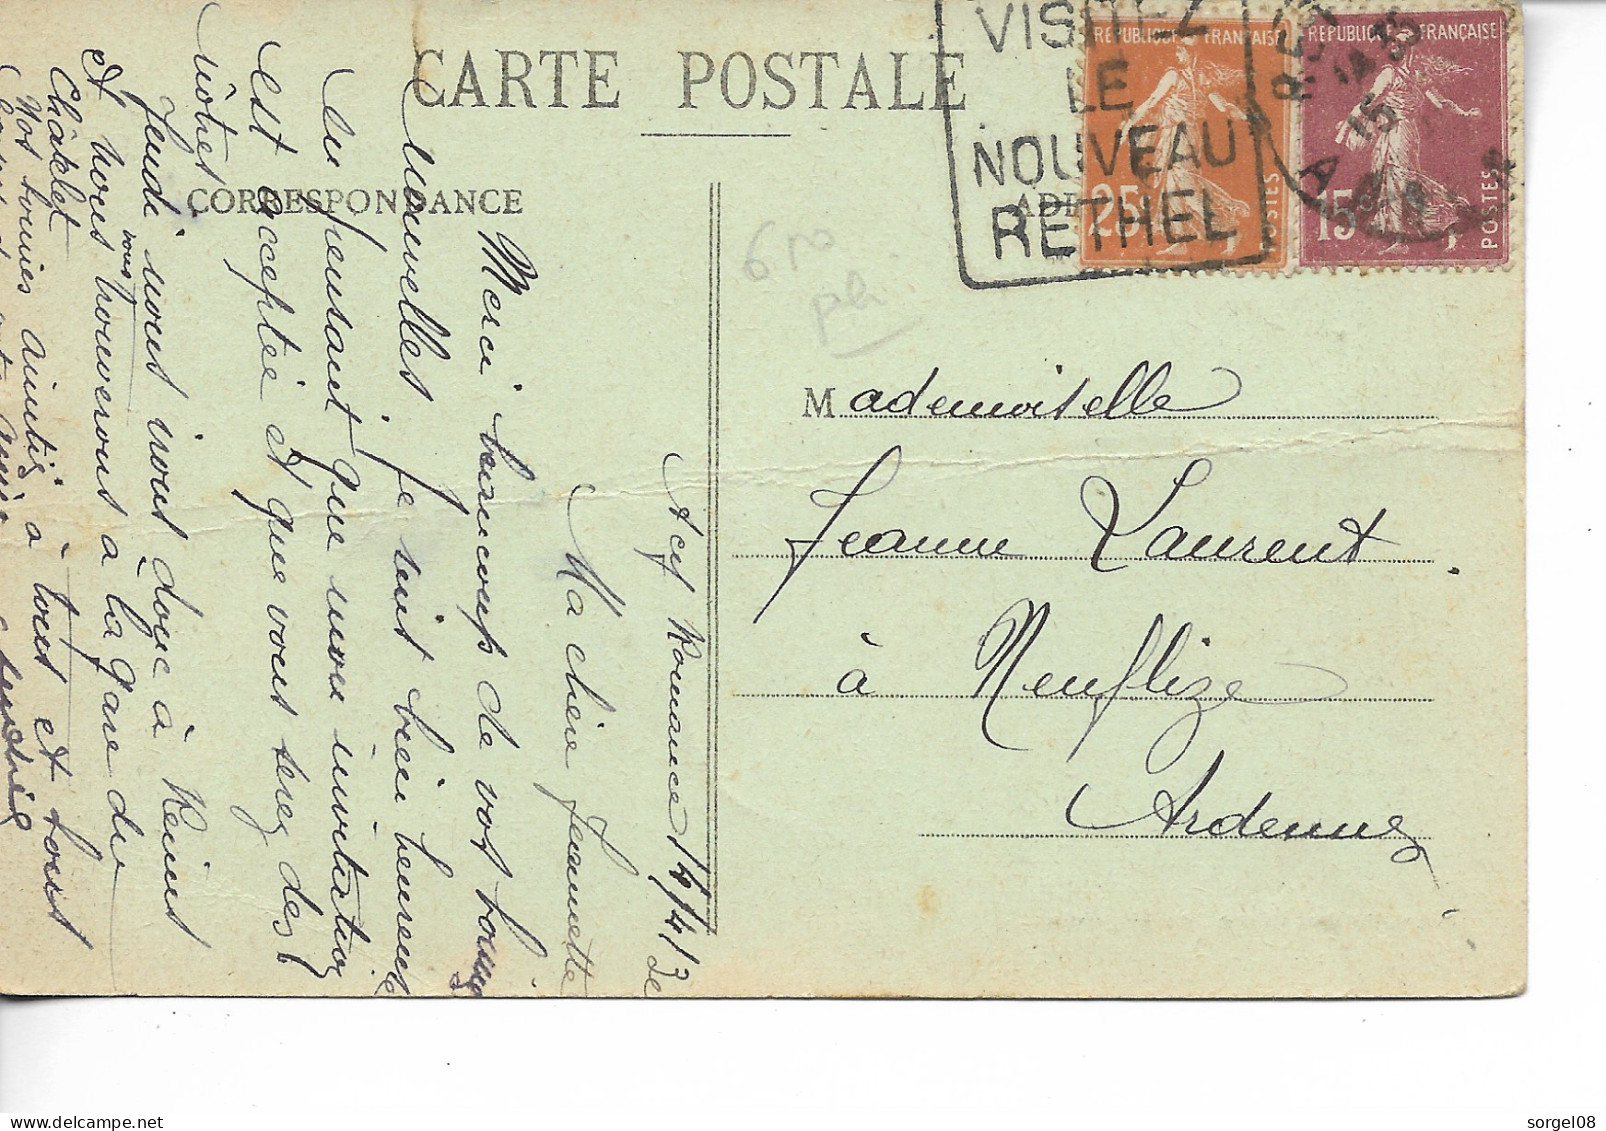 CARTE POSTALE
CORRESPONDANCE
VISITEZ
LE
NOUVEAU
RETHEL
REPUBLIQUE FRANÇAISE
25
POSTES
REPUBLIQUE FRANÇAISE
15
POSTES
15
Mademoiselle
Jeanne Laurent
à Neuflize
Ardennes
Acy Romance 14/4/3
Ma chère Jeannette
Merci beaucoup de vos bonnes
nouvelles, je suis bien heureuse
en pensant que mon invitation
est acceptée et que vous serez des
nôtres
Jeudi nous irons donc à Reims
et nous vous trouverons à la gare du
Châtelet
Nos bonnes amitiés à tous et bons
sorgel08